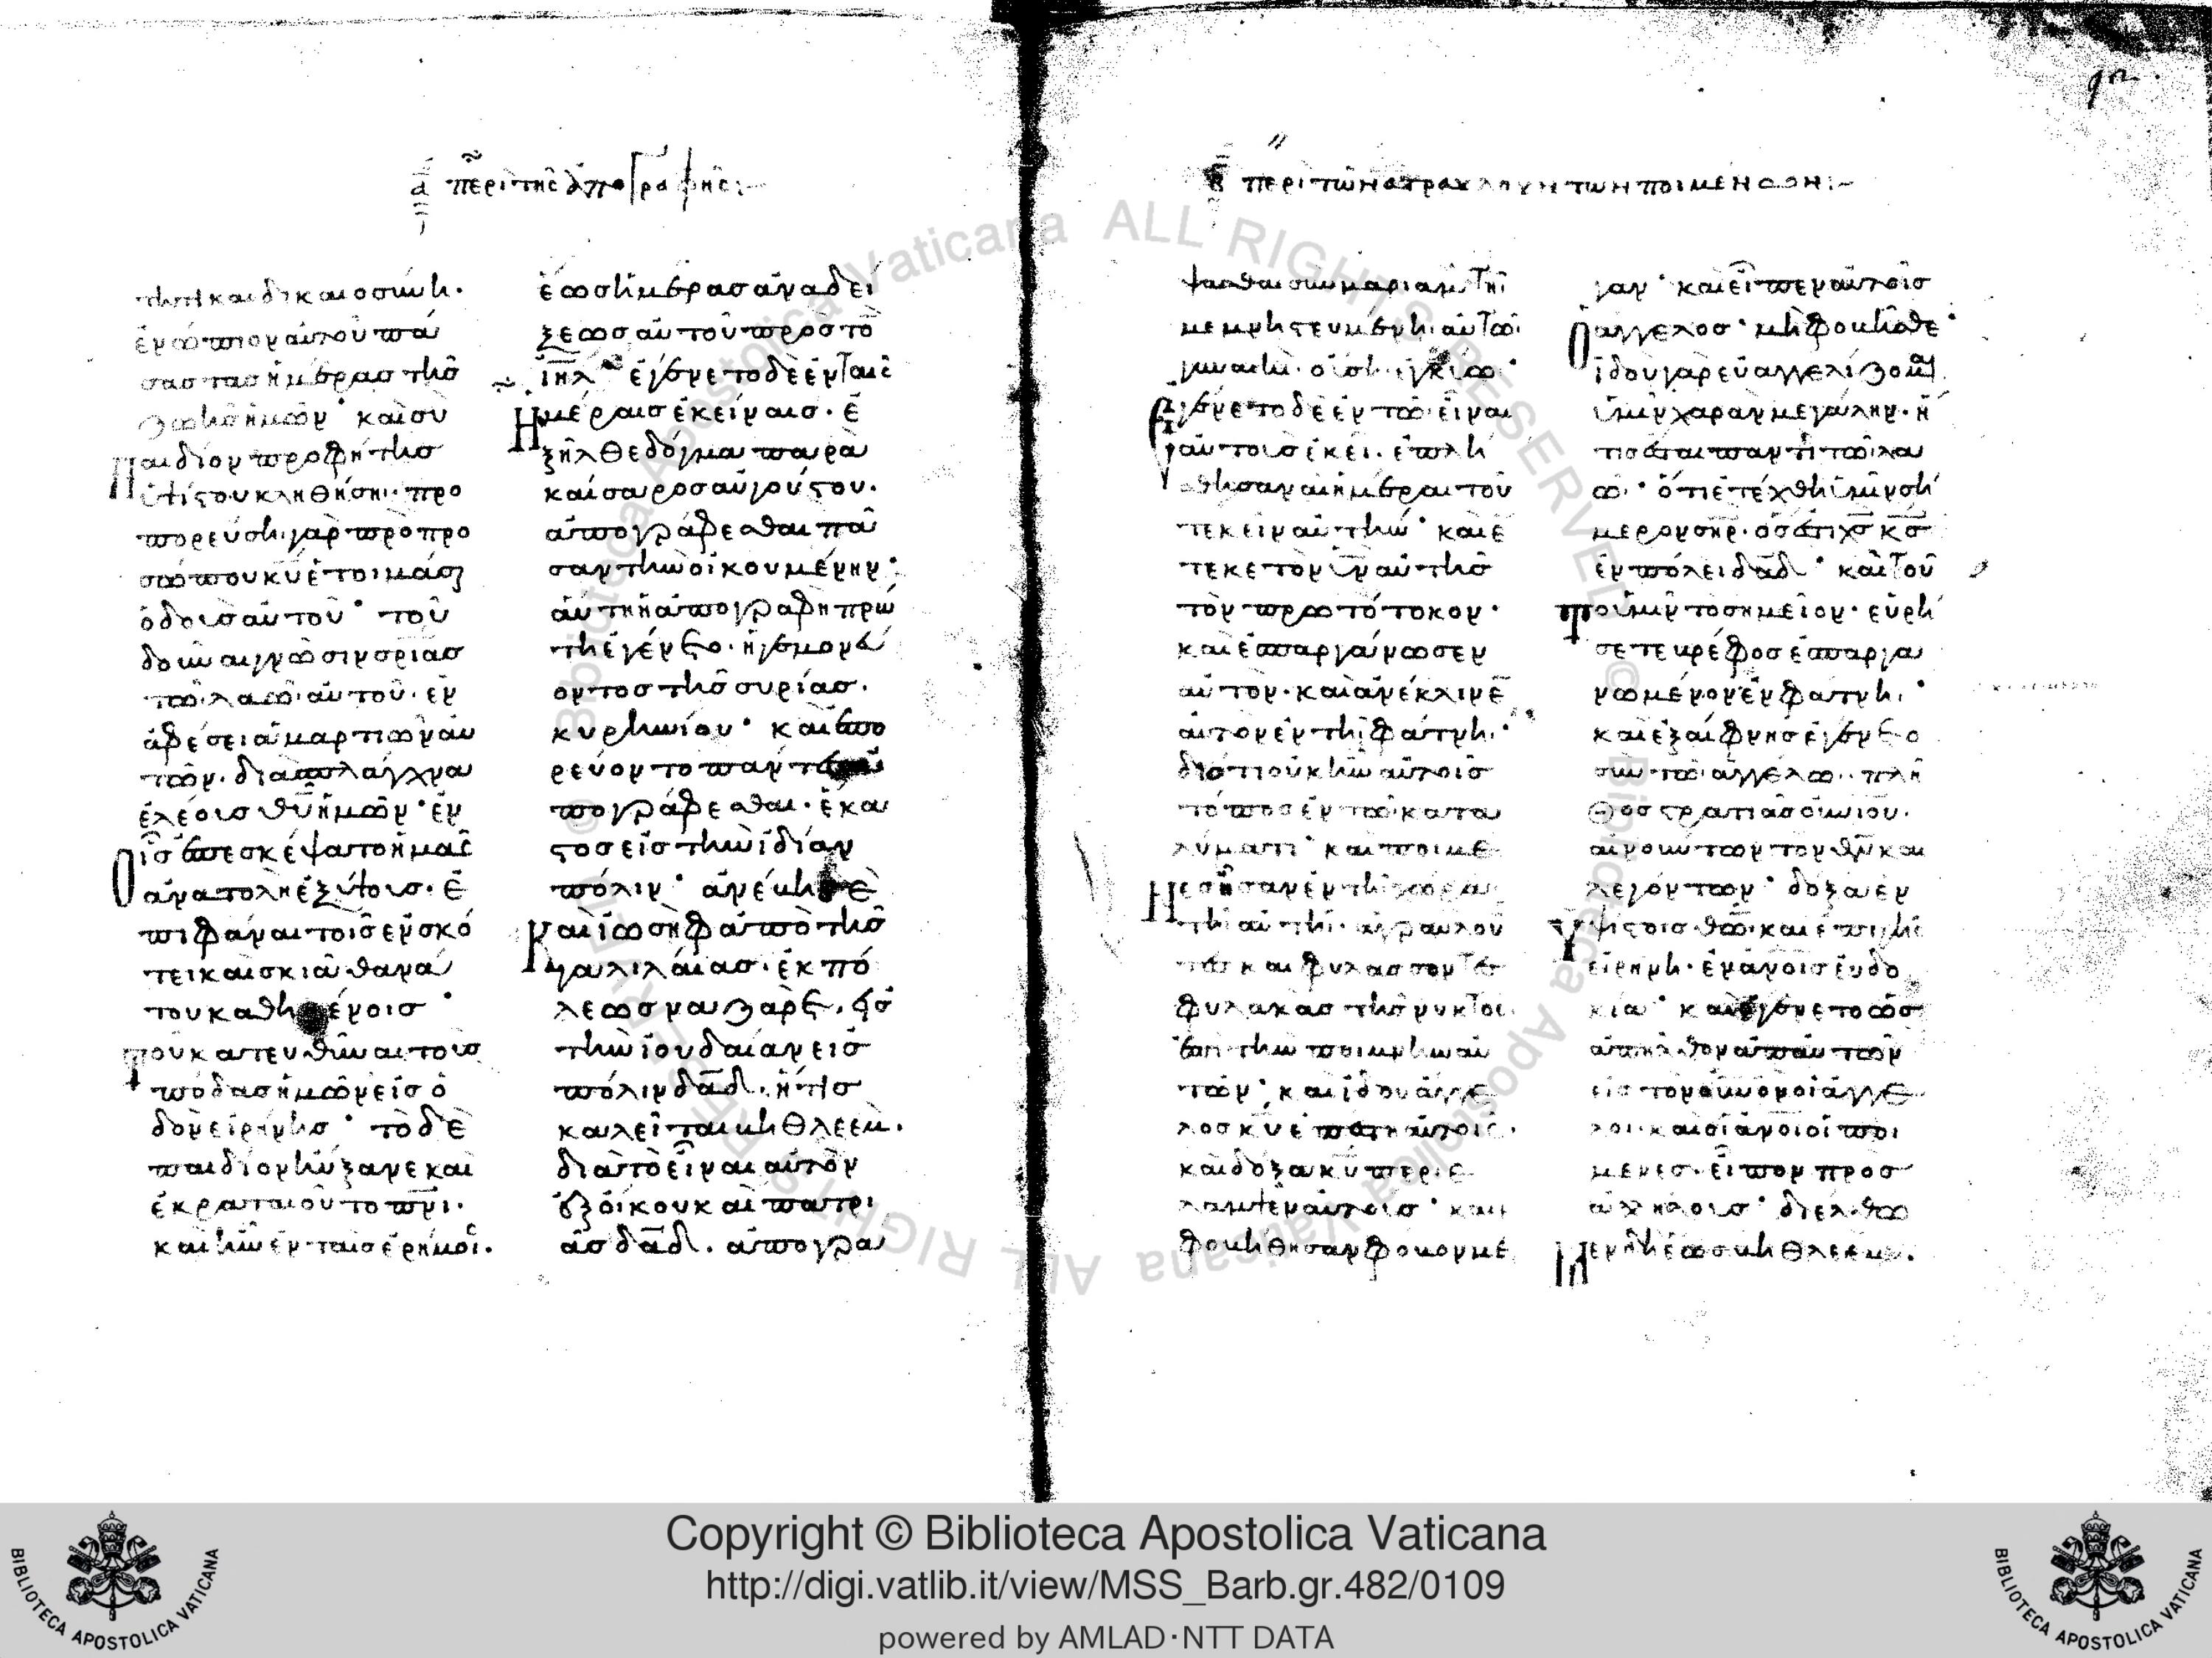 α περι της απογραφης:
τητι και δικαιοσύνη·
ἐνώπιον αὐτοῦ πά
σας τὰς ἡμέρας τῆς
ζωῆς ἡμῶν· καὶ σὺ
Παιδίον προφήτης
ὑψίστου κληθήση· προ
πορεύση γὰρ πρὸ προ
σώπου κυ ἑτοιμάσαι
ὁδοὺς αὐτοῦ· τοῦ
δοῦναι γνῶσιν σριας
τῶ λαῶ αὐτοῦ· ἐν
ἀφέσει ἁμαρτιῶν αὐ
τῶν· διὰ σπλάγχνα
ἐλέους θυ ἡμῶν· ἐν
Οἷς ἐπεσκέψατο ἡμᾶς
ἀνατολὴ ἐξ ὕψους· ἐ
πιφάναι τοῖς ἐν σκό
τει καὶ σκιᾶ θανά
του καθημένοις·
Τοῦ κατευθῦναι τοὺς
πόδας ἡμῶν εἰς ὁ
δὸν εἰρήνης· τὸ δὲ
παιδίον ηὔξανε καὶ
ἐκραταιοῦτο πνι·
καὶ ἦν ἐν ταῖς ἐρήμοις·
ἕως ἡμέρας ἀναδεί
ξεως αὐτοῦ πρὸς τὸ
ιηλ· ἐγένετο δὲ ἐν ταῖς
Ἡμέραις ἐκείναις· ἐ
ξῆλθε δόγμα παρὰ
καίσαρος αὐγούστου·
ἀπογράφεσθαι πᾶ
σαν τὴν οἰκουμένην·
αὕτη ἡ ἀπογραφὴ πρώ
τη ἐγένετο· ἡγεμονεύ
οντος τῆς συρίας·
κυρηνίου· καὶ ἐπο
ρεύοντο πάντες
πογράφεσθαι· ἕκα
στος εἰς τὴν ἰδίαν
πόλιν· ἀνέβη δὲ
Καὶ ἰωσὴφ ἀπὸ τῆς
γαλιλαίας· ἐκ πό
λεως ναζαρὲτ· εἰς
τὴν ἰουδαίαν εἰς
πόλιν δαδ· ἥτις
καλεῖται βηθλεέμ·
διὰ τὸ εἶναι αὐτὸν
ἐξ οἴκου καὶ πατρι
ᾶς δαδ· ἀπογρά
β περὶ τῶν ἀγραυλούντων ποιμένων:
ψασθαι σὺν μαριὰμ τῆ
μεμνηστευμένη αὐτῶ
γυναικὶ· οὔση ἐγκύω·
Ἐγένετο δὲ ἐν τῶ εἶναι
αὐτοὺς ἐκεῖ· ἐπλή
σθησαν αἱ ἡμέραι τοῦ
τεκεῖν αὐτήν· καὶ ἔ
τεκε τὸν υν αὐτῆς
τὸν πρωτότοκον·
καὶ ἐσπαργάνωσεν
αὐτὸν· καὶ ἀνέκλινεν
αὐτὸν ἐν τῆ φάτνη·
διότι οὐκ ἦν αὐτοῖς
τόπος ἐν τῶ κατα
λύματι· καὶ ποιμέ
Νες ἦσαν ἐν τῆ χώρα
τῆ αὐτῆ· ἀγραυλοῦν
τες καὶ φυλάσσοντες
φυλακὰς τῆς νυκτὸς
ἐπὶ τὴν ποίμνην αὐ
τῶν· καὶ ἰδοὺ ἄγγε
λος κυ ἐπέστη αὐτοῖς·
καὶ δόξα κυ περιέ
λαμψεν αὐτοὺς· καὶ
φοβήθησαν φόβον μέ
γαν· καὶ εἶπεν αὐτοῖς
Ὁ ἄγγελος· μὴ φοβῆσθε·
ἰδοὺ γὰρ εὐαγγελίζομαι
ὑμῖν χαρὰν μεγάλην· ἥ
τις ἔσται παντὶ τῶ λα
ῶ· ὅτι ἐτέχθη ὑμῖν σή
μερον σηρ· ὅς ἐστι χς κς
ἐν πόλει δαδ· καὶ τοῦ
Το ὑμῖν τὸ σημεῖον· εὑρή
σετε βρέφος ἐσπαργα
νωμένον ἐν φάτνη·
καὶ ἐξαίφνης ἐγένετο
σὺν τῶ ἀγγέλω· πλῆ
θος στρατιᾶς οὐνίου·
αἰνούντων τὸν θν καὶ
λεγόντων· δόξα ἐν
Ὑψίστοις θω· καὶ ἐπὶ γῆς
εἰρήνη· ἐν ἀνοις εὐδο
κία· καὶ ἐγένετο ὡς
ἀπῆλθον ἀπ' αὐτῶν
εἰς τὸν οὐνον οἱ ἄγγε
λοι· καὶ οἱ ἀνοι οἱ ποι
μένες· εἶπον πρὸς
ἀλλήλους· διέλθω
Μεν δὴ ἕως βηθλεέμ·
Copyright © Biblioteca Apostolica Vaticana
http://digi.vatlib.it/view/MSS_Barb.gr.482/0109
powered by AMLAD·NTT DATA
BIBLIOTECA APOSTOLICA VATICANA
BIBLIOTECA APOSTOLICA VATICANA